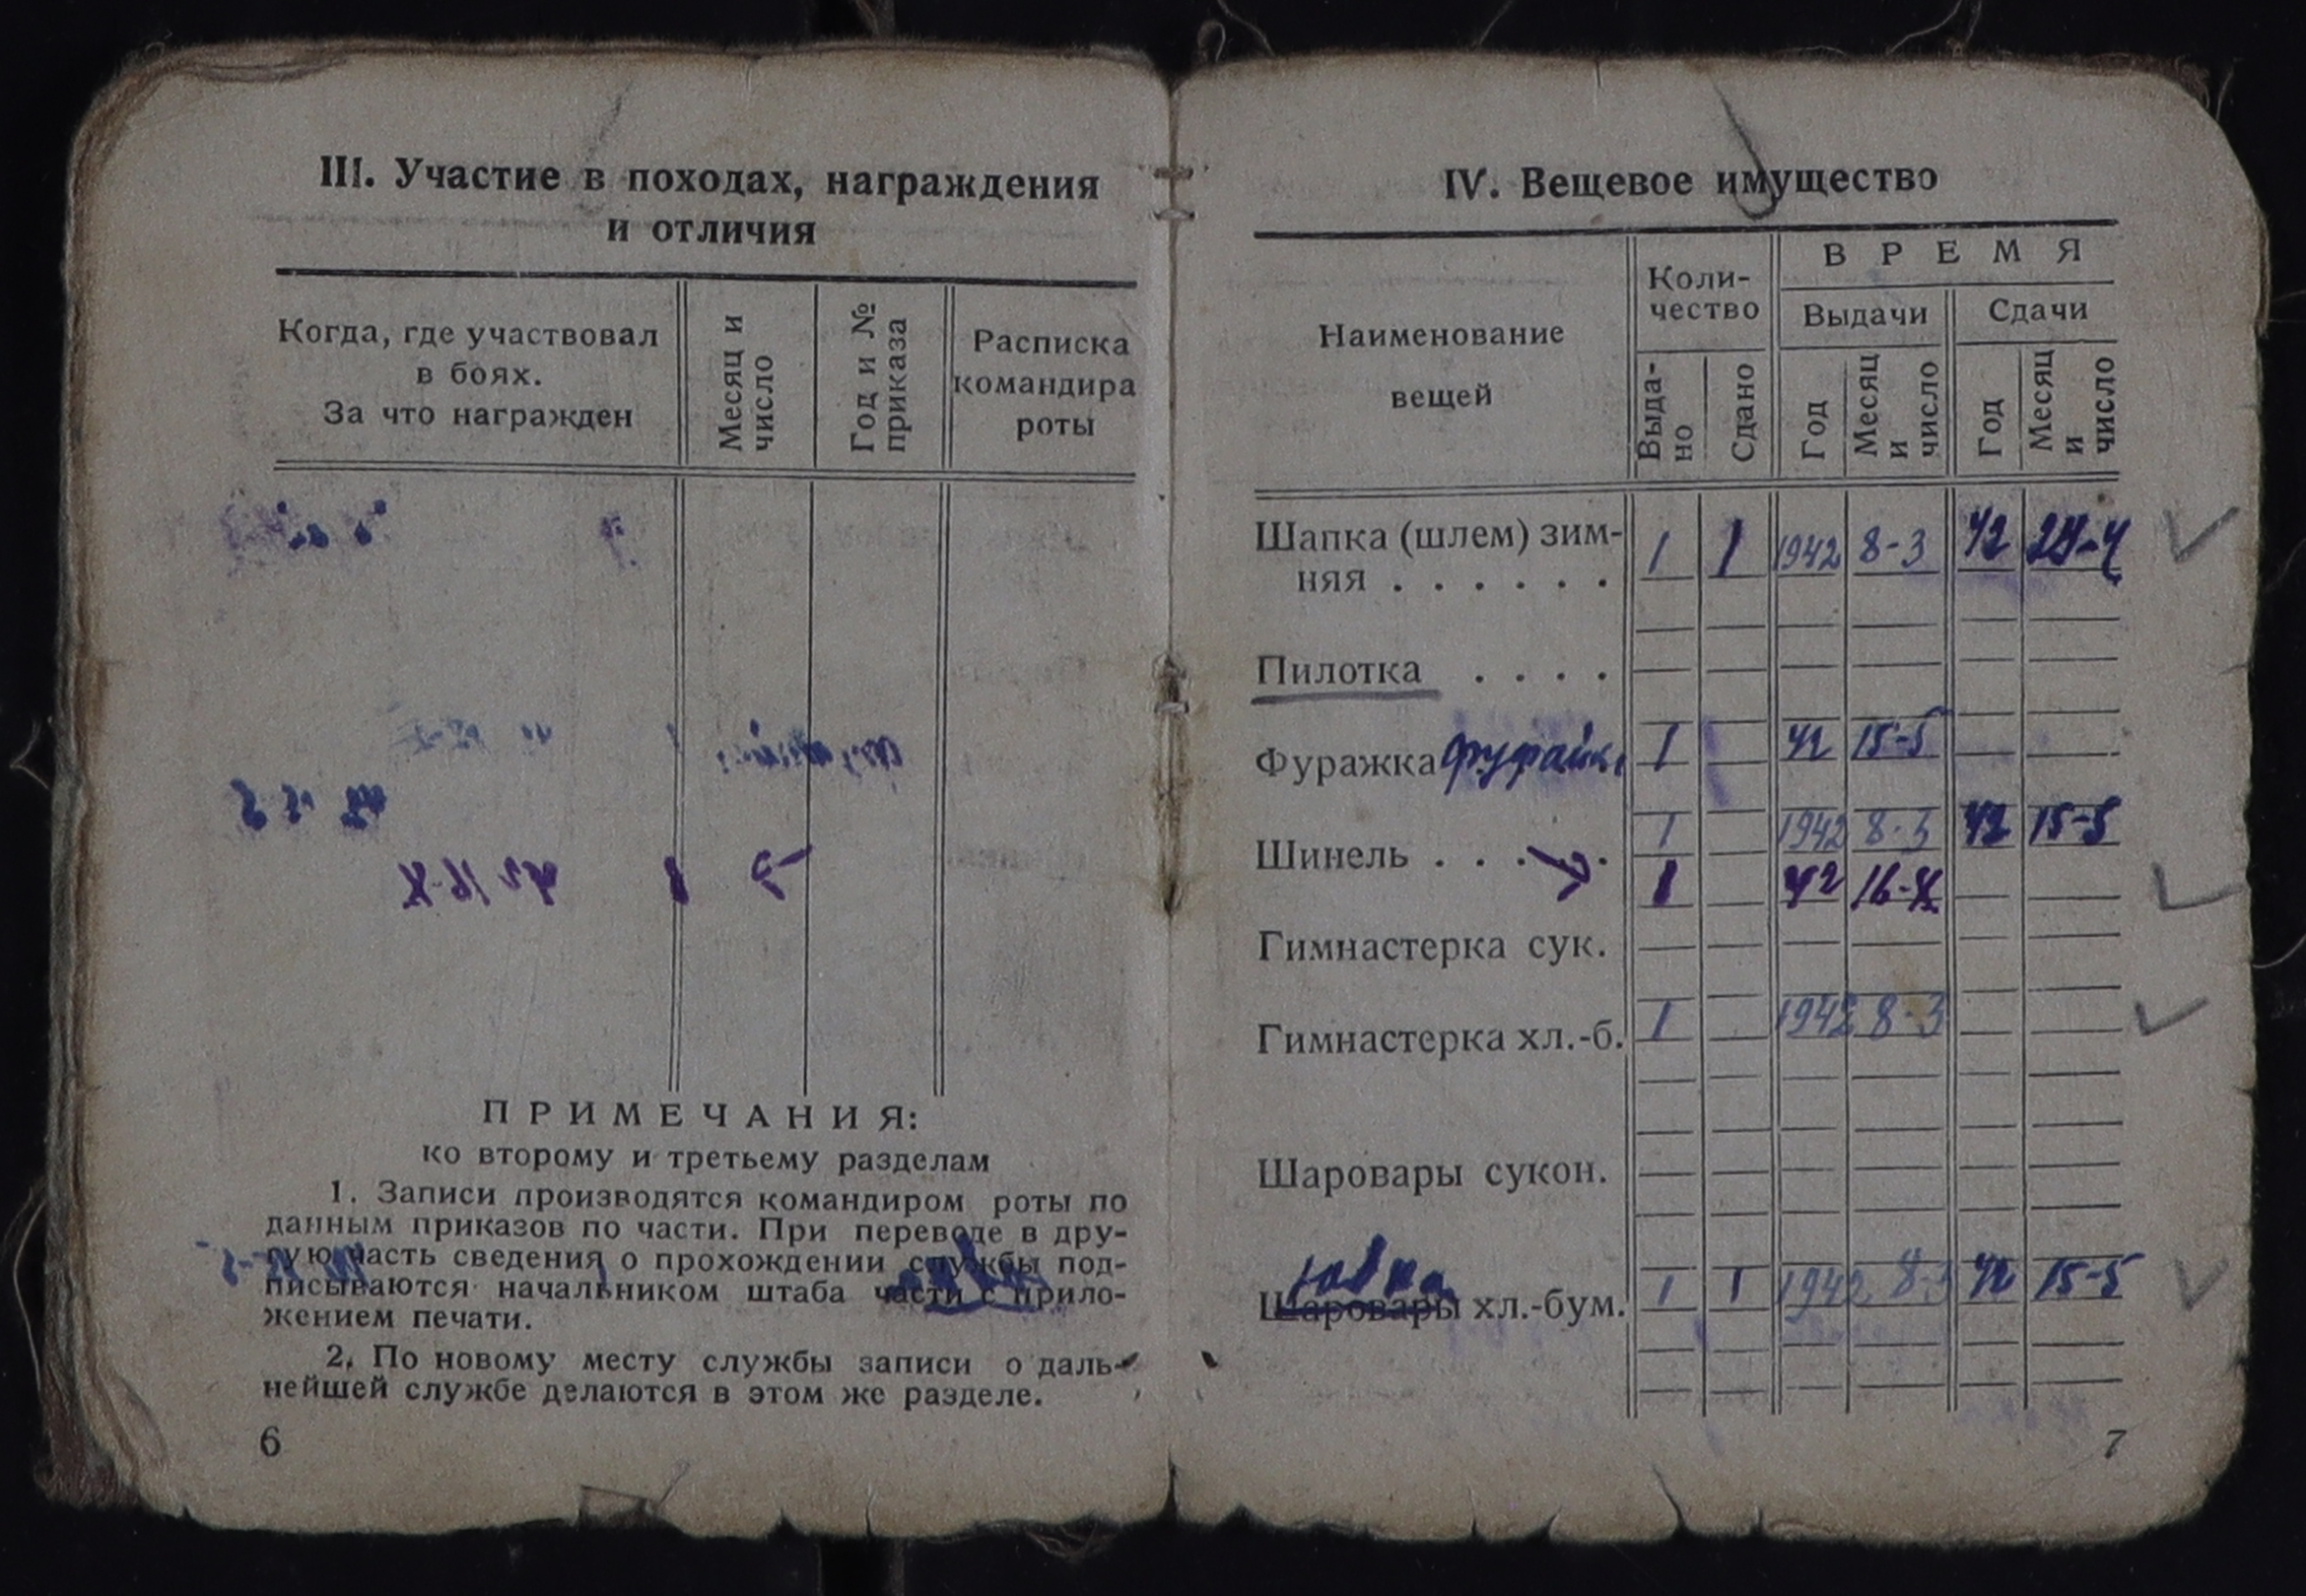 III. Участие в походах, награждения
и отличия
Когда, где участвовал
в боях.
За что награжден
Месяц и
число
Год и №
приказа
Расписка
командира
роты
ПРИМЕЧАНИЯ:
ко второму и третьему разделам
1. Записи производятся командиром роты по
данным приказов по части. При переводе в дру-
гую часть сведения о прохождении службы под-
писываются начальником штаба части с прило-
жением печати.
2. По новому месту службы записи о даль-
нейшей службе делаются в этом же разделе.
6
IV. Вещевое имущество
Наименование
вещей
Коли-
чество
ВРЕМЯ
Выдачи
Сдачи
Выда-
но
Сдано
Год
Месяц
и
число
Год
Месяц
и
число
Шапка (шлем) зим-
няя . . . . . . 1 1 1942 8-3 42
Пилотка . . . .
Фуражка фуфайка 1 42 15-5
1 1942 8-3 42 15-5
Шинель . . . . .
1 42 16-X
Гимнастерка сук.
Гимнастерка хл.-б. 1 1942 8-3
Шаровары сукон.
юбка
Шаровары хл.-бум. 1 1 1942 8-3 42 15-5
7